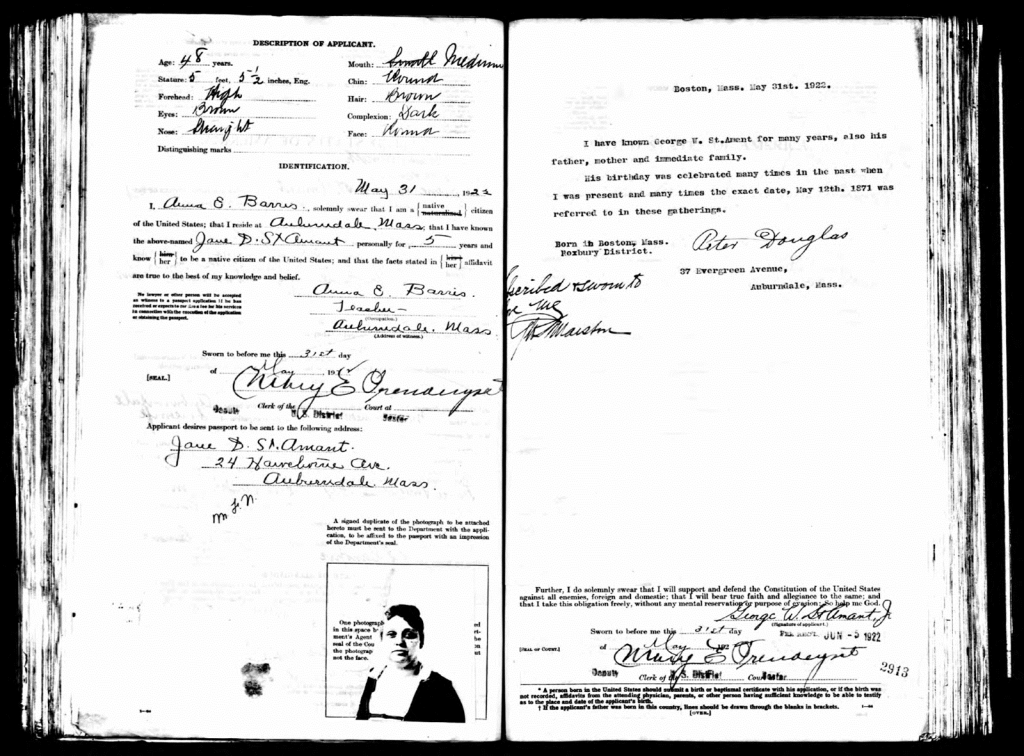 DESCRIPTION OF APPLICANT.
Age: 48 years.
Mouth: Small Medium
Stature: 5 feet, 5 1/2 inches, Eng.
Chin: Round
Forehead: High
Hair: Brown
Eyes: Brown
Complexion: Dark
Nose: Straight
Face: Round
Distinguishing marks
IDENTIFICATION.
May 31 1922
I, Anna E. Barris, solemnly swear that I am a {native naturalized} citizen
of the United States; that I reside at Auburndale, Mass; that I have known
the above-named Jane D. St Amant personally for 5 years and
know {him her} to be a native citizen of the United States; and that the facts stated in {his her} affidavit
are true to the best of my knowledge and belief.
Anna E. Barris.
No lawyer or other person will be accepted
as witness to a passport application if he has
received or expects to receive a fee for his services
in connection with the execution of the application
or obtaining the passport.
Teacher
(Occupation.)
Auburndale. Mass
(Address of witness.)
Sworn to before me this 31st day
of May, 192
[SEAL.]
Mary E. Prendergast
Deputy Clerk of the U.S. District Court at Boston
Applicant desires passport to be sent to the following address:
Jane D. St. Amant.
24 Hawthorne Ave.
Auburndale Mass.
A signed duplicate of the photograph to be attached
hereto must be sent to the Department with the appli-
cation, to be affixed to the passport with an impression
of the Department's seal.
One photograph
in this space
ment's Agent
seal of the Cou
the photograp
not the face.
Boston, Mass. May 31st. 1922.
I have known George W. St.Amant for many years, also his
father, mother and immediate family.
His birthday was celebrated many times in the past when
I was present and many times the exact date, May 12th. 1871 was
referred to in these gatherings.
Born in Boston, Mass.
Roxbury District.
Peter Douglas
37 Evergreen Avenue,
Auburndale, Mass.
scribed & sworn to
me
Marston
Further, I do solemnly swear that I will support and defend the Constitution of the United States
against all enemies, foreign and domestic; that I will bear true faith and allegiance to the same; and
that I take this obligation freely, without any mental reservation or purpose of evasion: So help me God.
George W. St Amant, Jr
(Signature of applicant.)
Sworn to before me this 31st day
FEE RECT. JUN -5 1922
of May, 192
[SEAL OF COURT.]
Mary E Prendergast
Deputy Clerk of the U.S. District Court Boston
2913
* A person born in the United States should submit a birth or baptismal certificate with his application, or if the birth was
not recorded, affidavits from the attending physician, parents, or other person having sufficient knowledge to be able to testify
as to the place and date of the applicant's birth.
† If the applicant's father was born in this country, lines should be drawn through the blanks in brackets.
[OVER.]